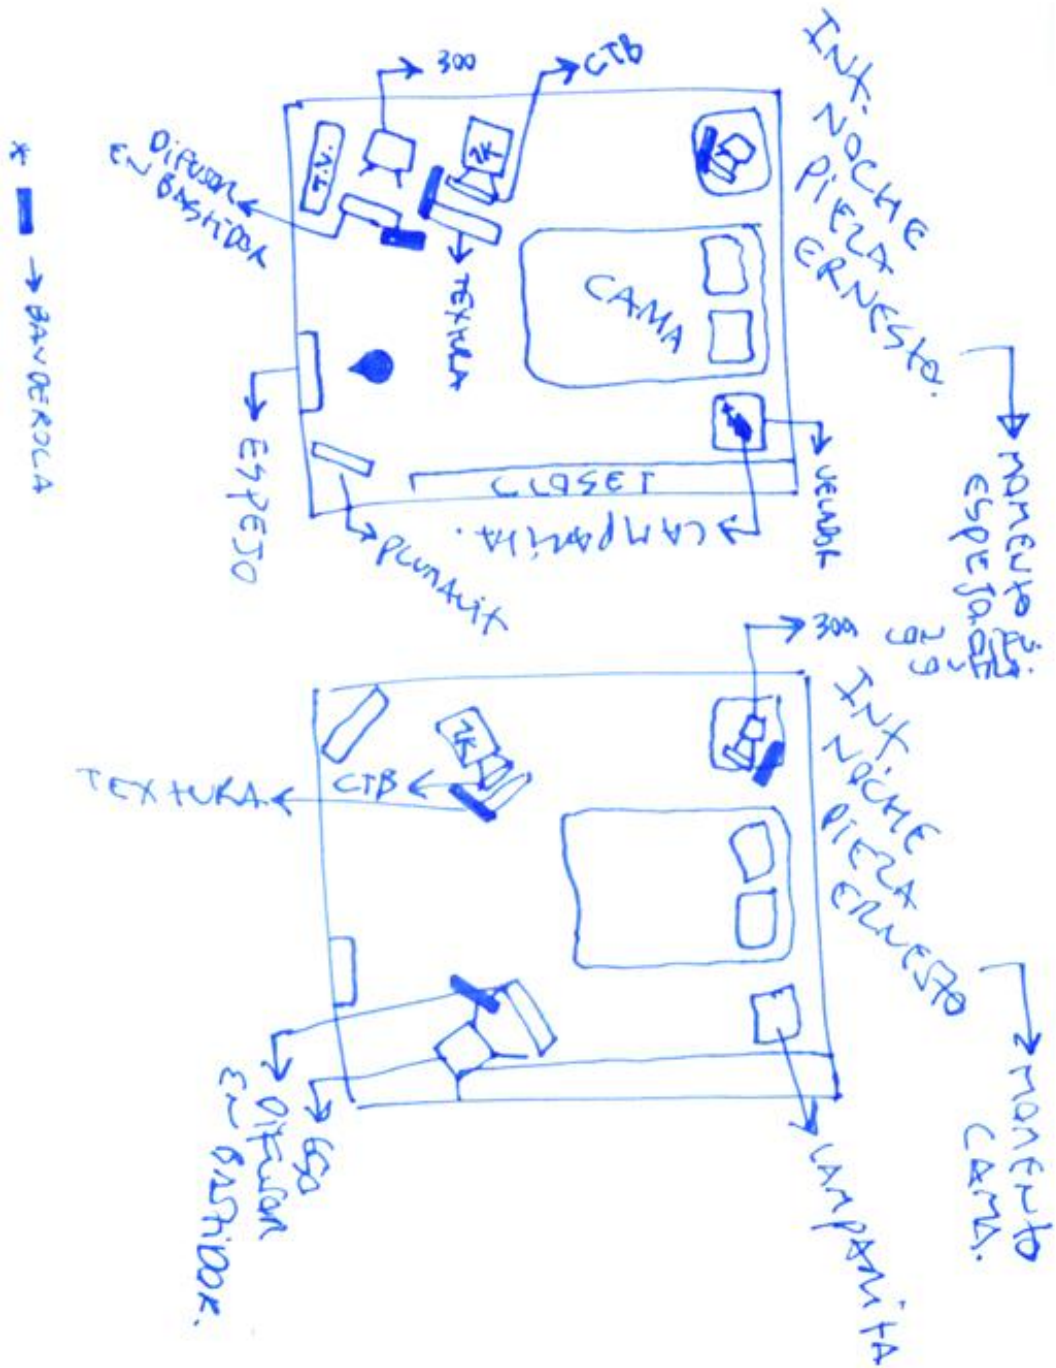 INT.
NOCHE
PIEZA
ERNESTO.
MOMENTO
ESPEJO
300
CTB
2K
T.V.
DIFUSOR
EN BASTIDOR
TEXTURA
CAMA
ESPEJO
PLUMAVIT
CLOSET
LAMPARITA.
VELADOR
* → BANDEROLA
INT.
NOCHE
PIEZA
ERNESTO
MOMENTO
CAMA.
300
CTB
TEXTURA
650
DIFUSOR
EN BASTIDOR.
LAMPARITA